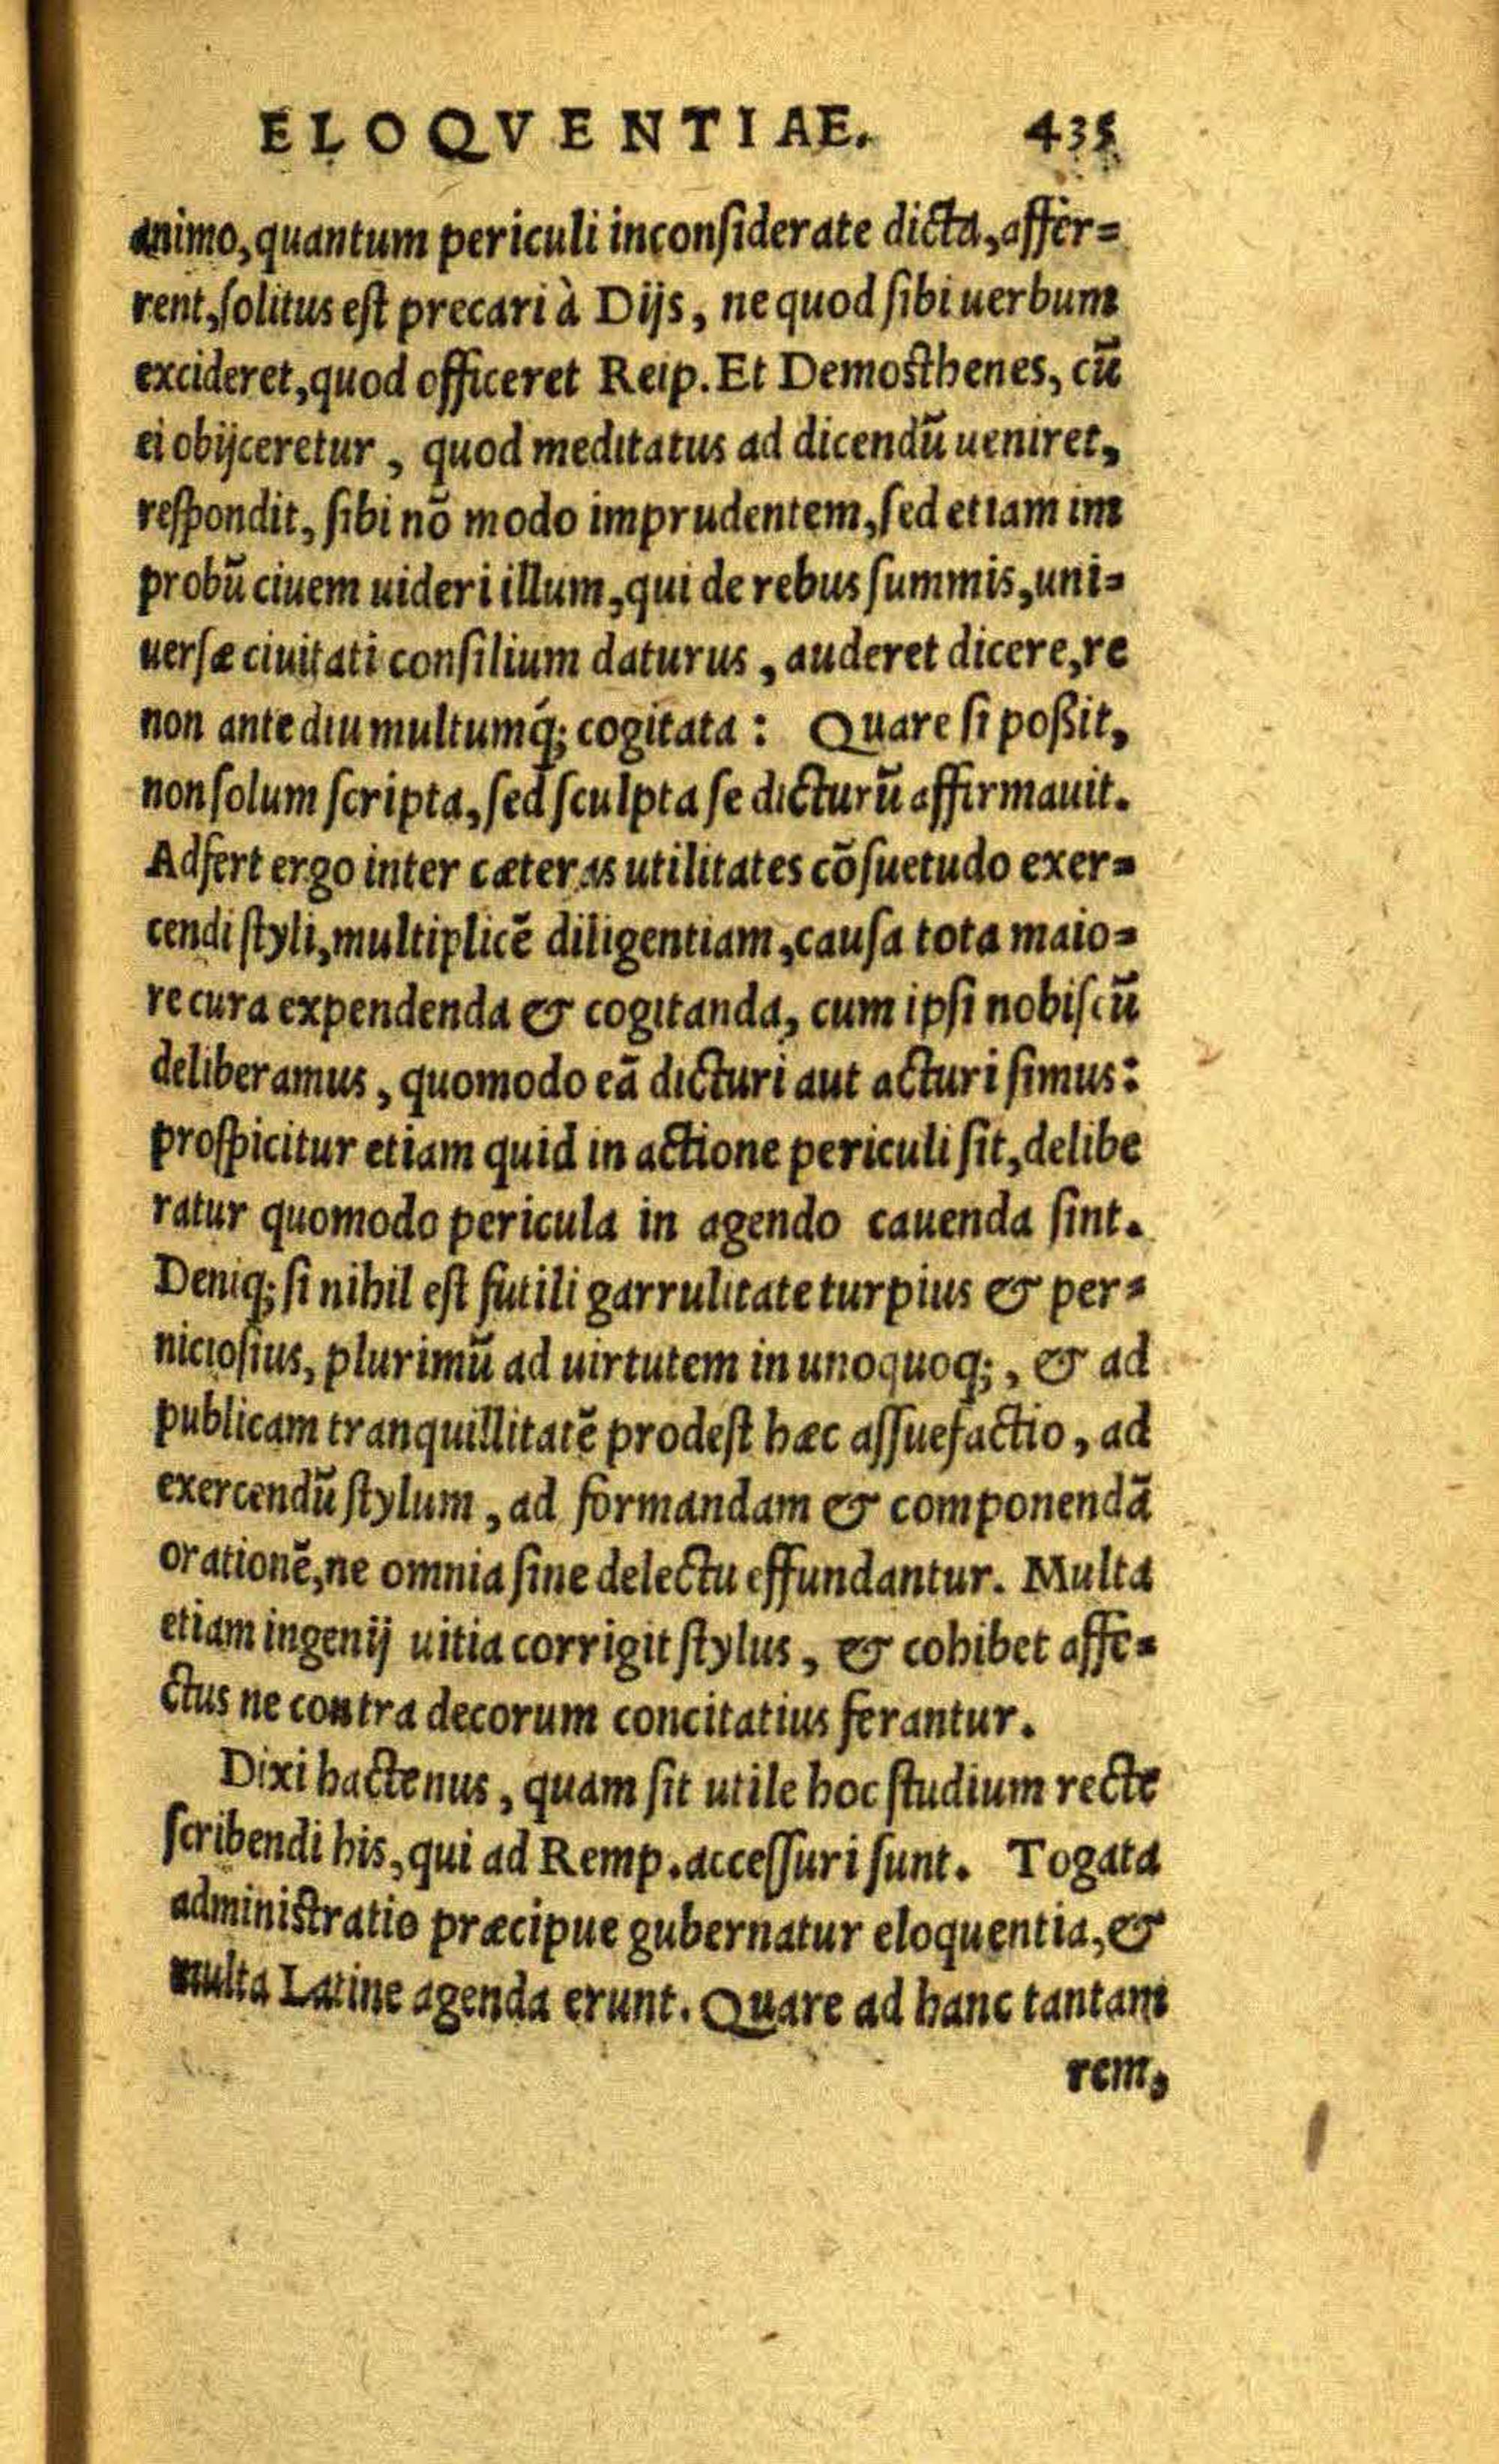 ELOQVENTIAE. 435
animo, quantum periculi inconſiderate dicta, affer=
rent, ſolitus eſt precari à Dijs, ne quod ſibi uerbum
excideret, quod officeret Reip. Et Demoſthenes, cū
ei obijceretur, quod meditatus ad dicendū ueniret,
reſpondit, ſibi nō modo imprudentem, ſed etiam im
probū ciuem uideri illum, qui de rebus ſummis, uni=
uerſæ ciuitati conſilium daturus, auderet dicere, re
non ante diu multumq́; cogitata: Quare ſi poßit,
non ſolum ſcripta, ſed ſculpta ſe dicturū affirmauit.
Adfert ergo inter cæteras utilitates cōſuetudo exer=
cendi ſtyli, multiplicē diligentiam, cauſa tota maio=
re cura expendenda & cogitanda, cum ipſi nobiſcū
deliberamus, quomodo eā dicturi aut acturi ſimus:
proſpicitur etiam quid in actione periculi ſit, delibe
ratur quomodo pericula in agendo cauenda ſint.
Deniq; ſi nihil eſt futili garrulitate turpius & per=
nicioſius, plurimū ad uirtutem in unoquoq;, & ad
publicam tranquillitatē prodeſt hæc aſſuefactio, ad
exercendū ſtylum, ad formandam & componendā
orationē, ne omnia ſine delectu effundantur. Multa
etiam ingenij uitia corrigit ſtylus, & cohibet affe=
ctus ne contra decorum concitatius ferantur.
Dixi hactenus, quam ſit utile hoc ſtudium recte
ſcribendi his, qui ad Remp. acceſſuri ſunt. Togata
adminiſtratio præcipue gubernatur eloquentia, &
multa Latine agenda erunt. Quare ad hanc tantam
rem,